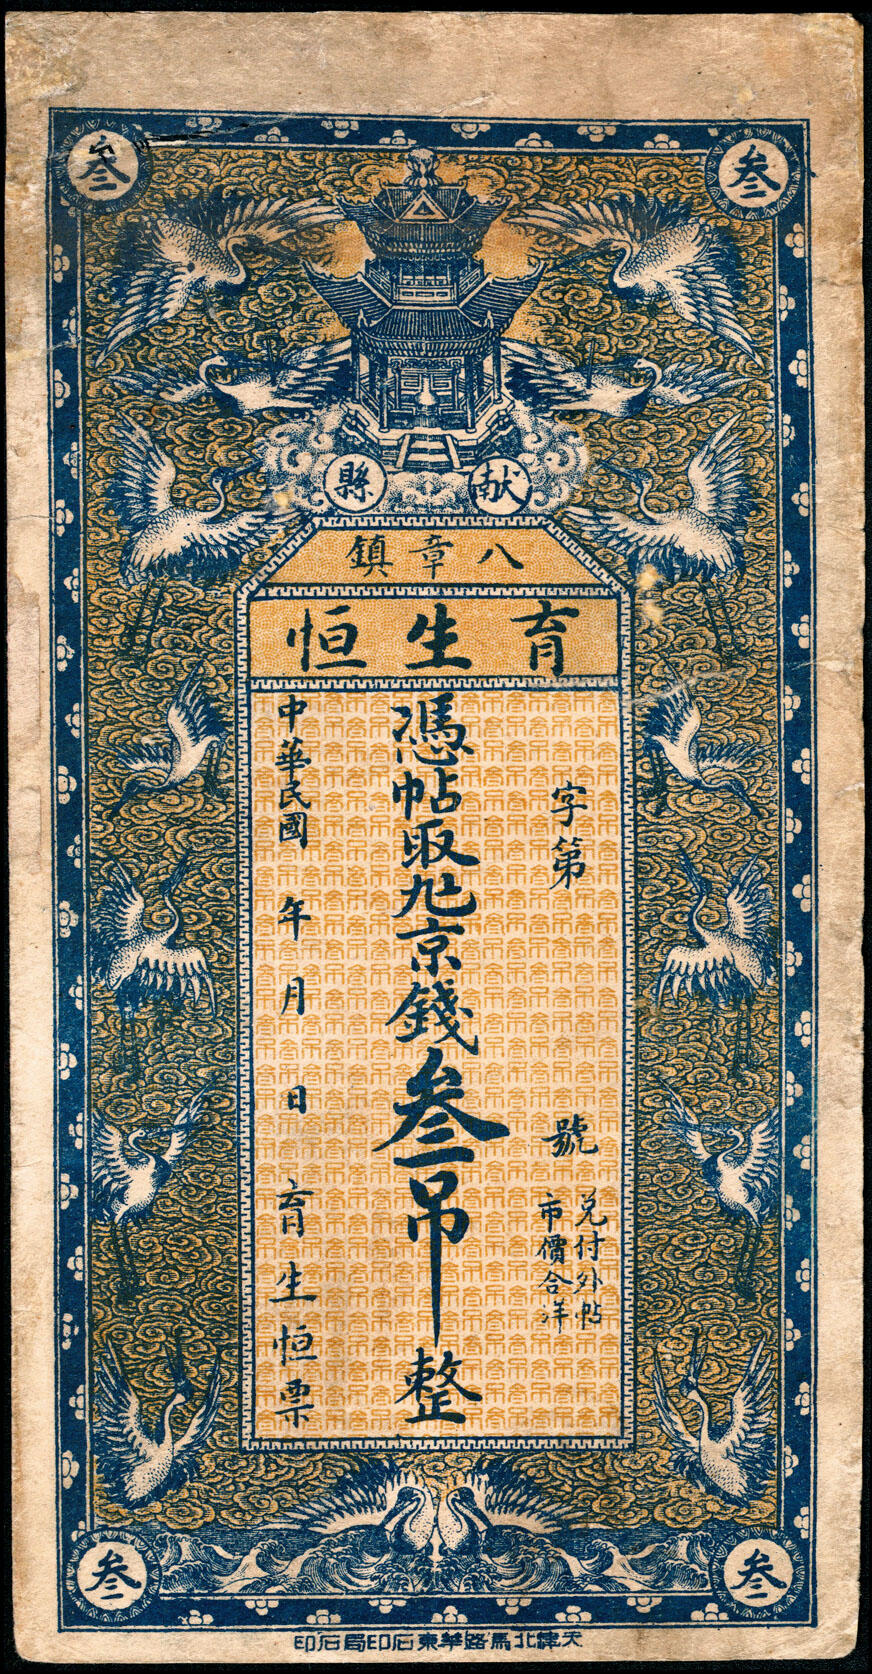 叁
叁
献縣
八章鎮
育生恒
字第 號
兑付外帖
市價合洋
憑帖取九京錢叁吊整
中華民國 年 月 日 育生恒票
叁
叁
天津北馬路華東石印局石印